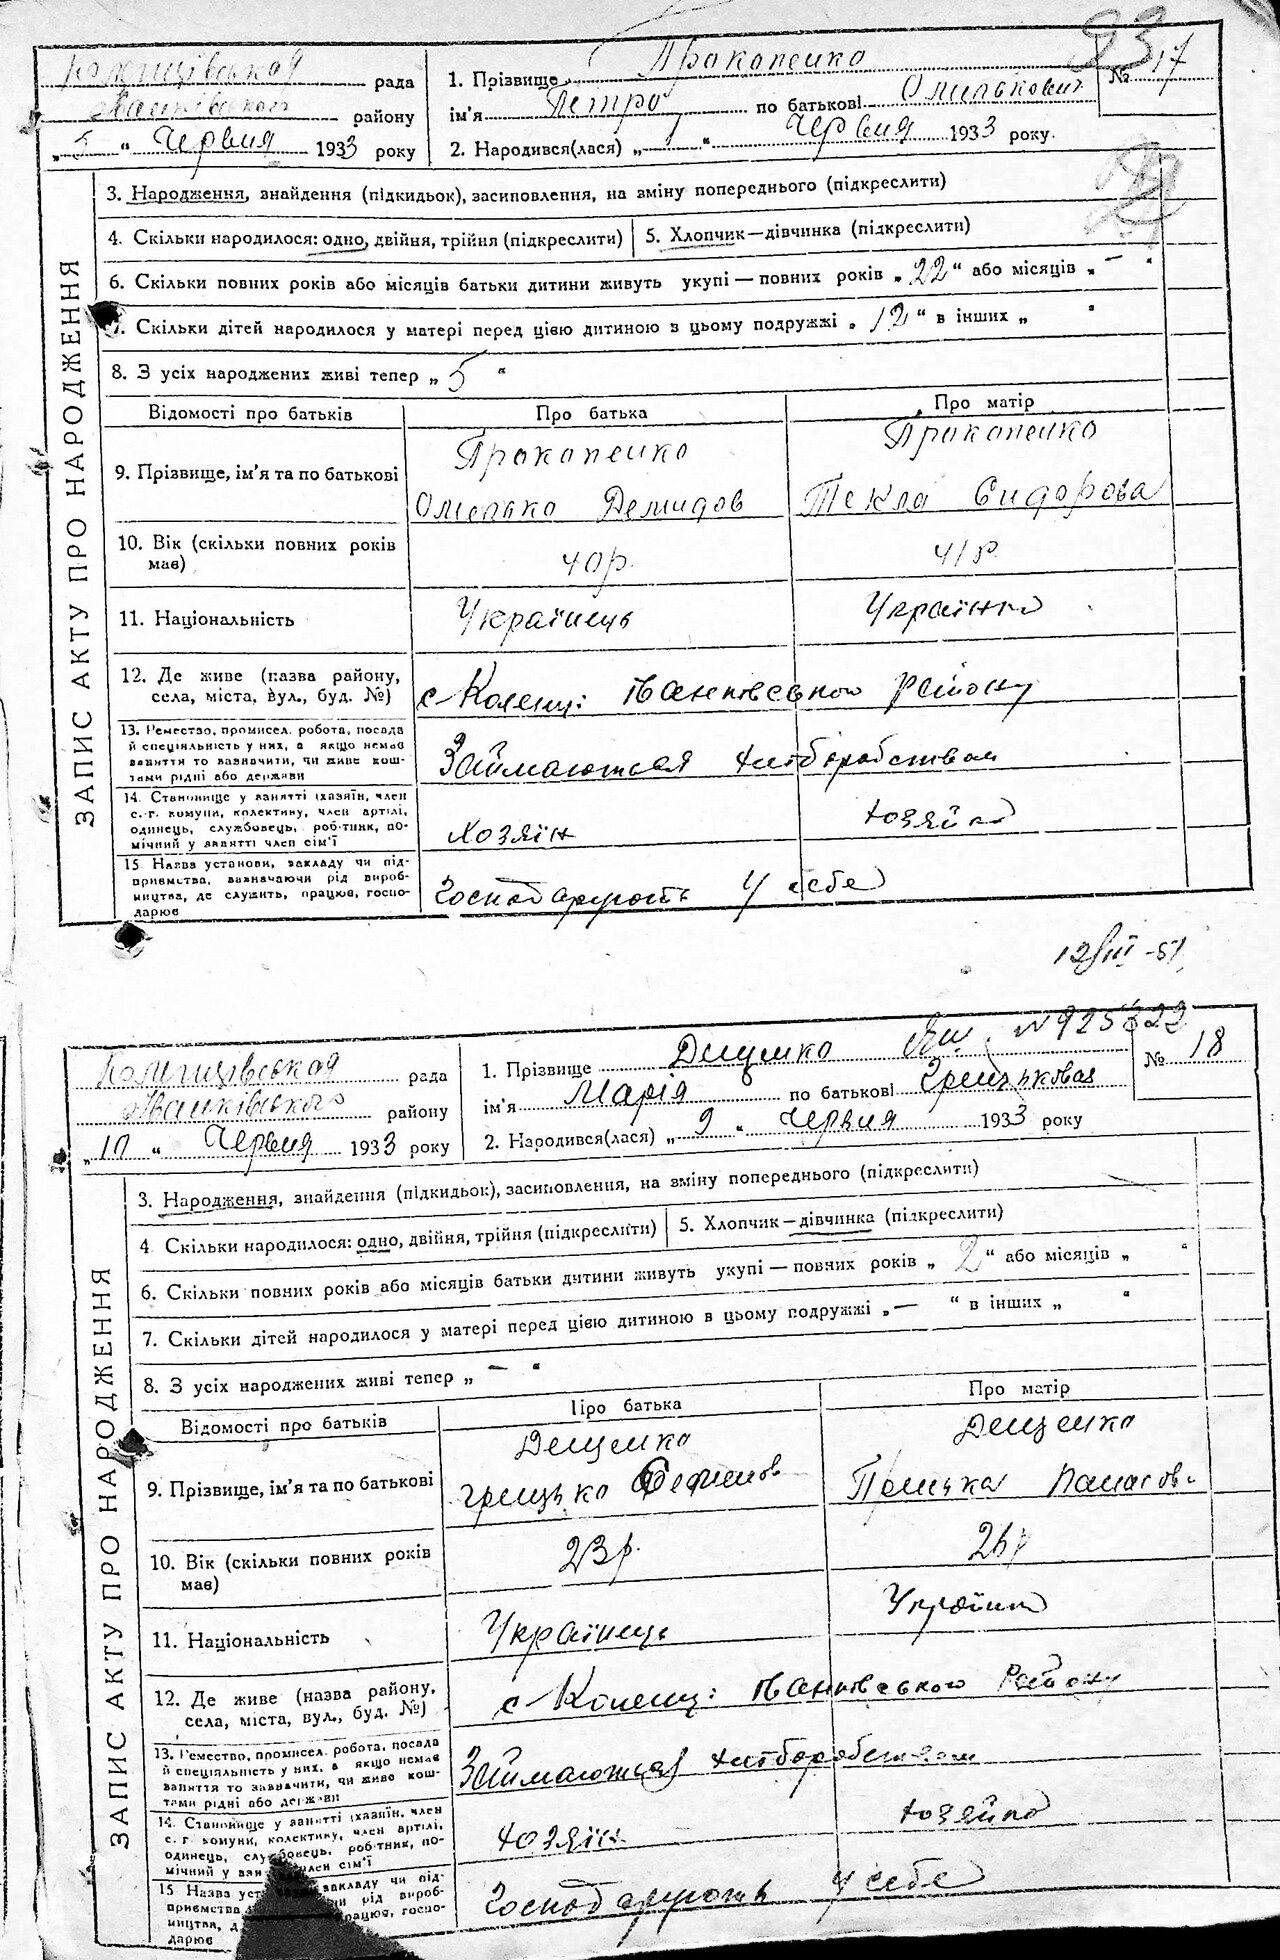 93
Коленцівская рада
Іванківського району
„ 5 “ Червня 1933 року
1. Прізвище Прокопенко
ім'я Петро по батькові Омелькович
2. Народився(лася) „ “ Червня 1933 року.
№ 17
ЗАПИС АКТУ ПРО НАРОДЖЕННЯ
3. Народження, знайдення (підкидьок), засиповлення, на зміну попереднього (підкреслити)
4. Скільки народилося: одно, двійня, трійня (підкреслити)
5. Хлопчик—дівчинка (підкреслити)
6. Скільки повних років або місяців батьки дитини живуть укупі — повних років „ 22 “ або місяців „ — “
7. Скільки дітей народилося у матері перед цією дитиною в цьому подружжі „ 12 “ в інших „ “
8. З усіх народжених живі тепер „ 5 “
Відомості про батьків
Про батька
Про матір
9. Прізвище, ім'я та по батькові
Прокопенко
Омелько Демидов
Прокопенко
Текла Сидорова
10. Вік (скільки повних років має)
40р.
41р.
11. Національність
Українець
Українка
12. Де живе (назва району,
села, міста, вул., буд. №)
с Коленці Іванківського району
13. Ремество, промисел, робота, посада
й спеціяльність у них, а якщо немає
заняття то зазначити, чи живе кош-
тами рідні або держави
Займаються хліборобством
14. Становище у занятті (хазяїн, член
с.-г. комуни, колективу, член артілі,
одинець, службовець, робітник, по-
мічний у занятті член сім'ї
хозяїн
хозяйка
15. Назва установи, закладу чи під-
приємства, визначаючи рід вироб-
ництва, де служить, працює, госпо-
дарює
Господарують у себе
12/III-51
№ 925822
Коленцівская рада
Іванківського району
„ 10 “ Червня 1933 року
1. Прізвище Дещенко
ім'я Марія по батькові Грицьковая
2. Народився(лася) „ 9 “ Червня 1933 року
№ 18
ЗАПИС АКТУ ПРО НАРОДЖЕННЯ
3. Народження, знайдення (підкидьок), засиповлення, на зміну попереднього (підкреслити)
4. Скільки народилося: одно, двійня, трійня (підкреслити)
5. Хлопчик—дівчинка (підкреслити)
6. Скільки повних років або місяців батьки дитини живуть укупі — повних років „ 2 “ або місяців „ “
7. Скільки дітей народилося у матері перед цією дитиною в цьому подружжі „ — “ в інших „ “
8. З усіх народжених живі тепер „ — “
Відомості про батьків
Про батька
Про матір
9. Прізвище, ім'я та по батькові
Дещенко
Грицько
Дещенко
Панасов
10. Вік (скільки повних років має)
23р.
26р
11. Національність
Українець
Українка
12. Де живе (назва району,
села, міста, вул., буд. №)
с Коленці Іванківського Району
13. Ремество, промисел, робота, посада
й спеціяльність у них, а якщо немає
заняття то зазначити, чи живе кош-
тами рідні або держави
Займаються хліборобством
14. Становище у занятті (хазяїн, член
с.-г. комуни, колективу, член артілі,
одинець, службовець, робітник, по-
мічний у занятті член сім'ї
хозяїн
хозяйка
15 Назва закладу чи під-
приємства рід вироб-
ництва, д працює, госпо-
дарює
Господарують у себе